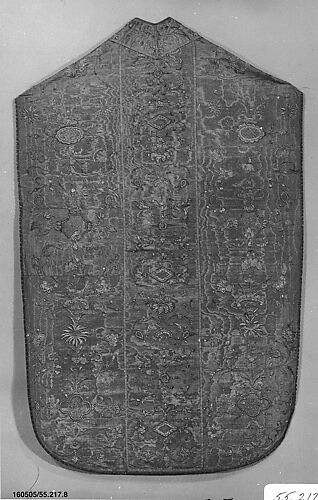 160505/55.217.8
55.217